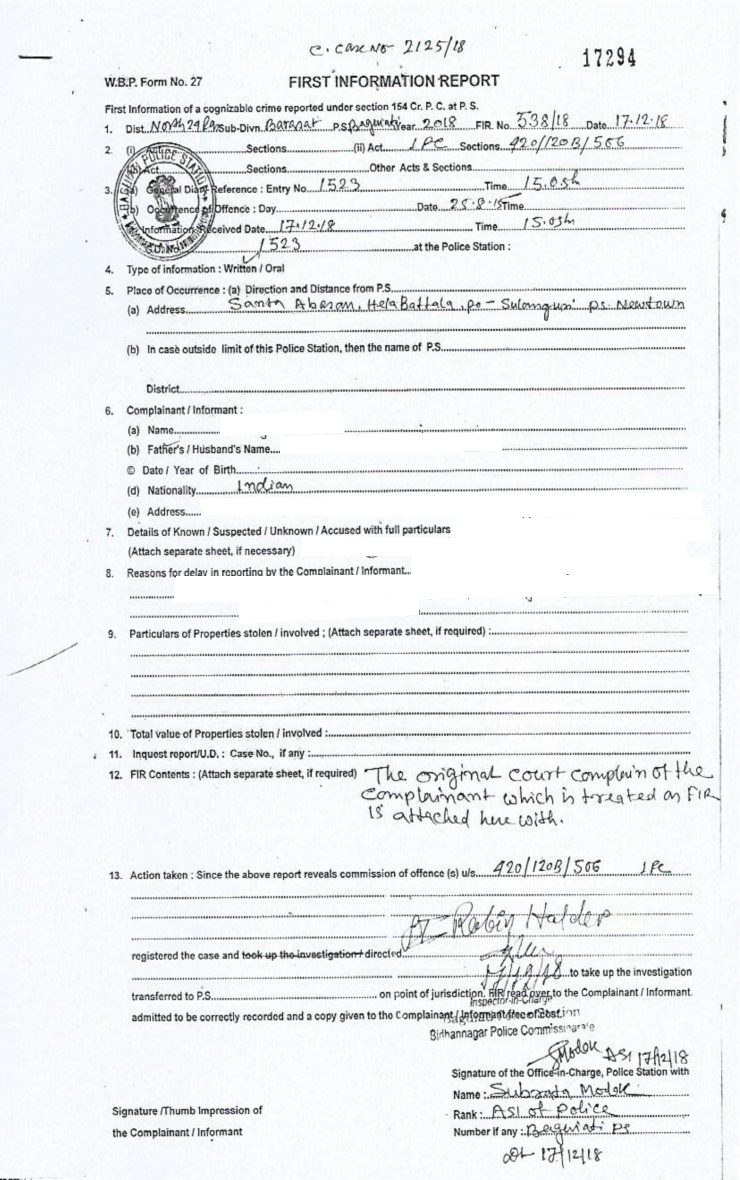 C. Case No 2125/18
17294
W.B.P. Form No. 27
FIRST INFORMATION REPORT
First Information of a cognizable crime reported under section 154 Cr. P. C. at P. S.
1. Dist. North 24 Pgs Sub-Divn. Barasat P.S. Baguiati Year 2018 FIR. No. 538/18 Date 17.12.18
2. (i) Sections (ii) Act IPC Sections. 420/120B/506
Act Sections Other Acts & Sections
3. (a) General Diary Reference : Entry No 1523 Time 15.05h
(b) Occurrence of Offence : Day Date 25.8.15 Time
Information Received Date 17.12.18 Time 15.05h
G.D. No. 1523 at the Police Station :
4. Type of information : Written / Oral
5. Place of Occurrence : (a) Direction and Distance from P.S.
(a) Address Santa Abasan, Hela Battala, po - Sulanguri ps. Newtown
(b) In case outside limit of this Police Station, then the name of P.S.
District
6. Complainant / Informant :
(a) Name
(b) Father's / Husband's Name
© Date / Year of Birth
(d) Nationality Indian
(e) Address
7. Details of Known / Suspected / Unknown / Accused with full particulars
(Attach separate sheet, if necessary)
8. Reasons for delay in reporting by the Complainant / Informant
9. Particulars of Properties stolen / involved ; (Attach separate sheet, if required) :
10. Total value of Properties stolen / involved :
11. Inquest report/U.D. : Case No., if any :
12. FIR Contents : (Attach separate sheet, if required) The original court complain of the
Complainant which is treated as FIR
is attached here with.
13. Action taken : Since the above report reveals commission of offence (s) u/s. 420/120B/506 IPC
Rabin Halder
registered the case and took up the investigation directed
17/12/18 to take up the investigation
transferred to P.S. on point of jurisdiction. FIR read over to the Complainant / Informant.
Inspector-in-Charge
admitted to be correctly recorded and a copy given to the Complainant / Informant free of cost
Baguiati Police Station
Bidhannagar Police Commissionarate
SModak ASI 17/12/18
Signature of the Office-in-Charge, Police Station with
Name : Subrata Modak
Signature /Thumb Impression of
Rank : ASI of Police
the Complainant / Informant
Number if any : Baguiati PS
Dt 17/12/18